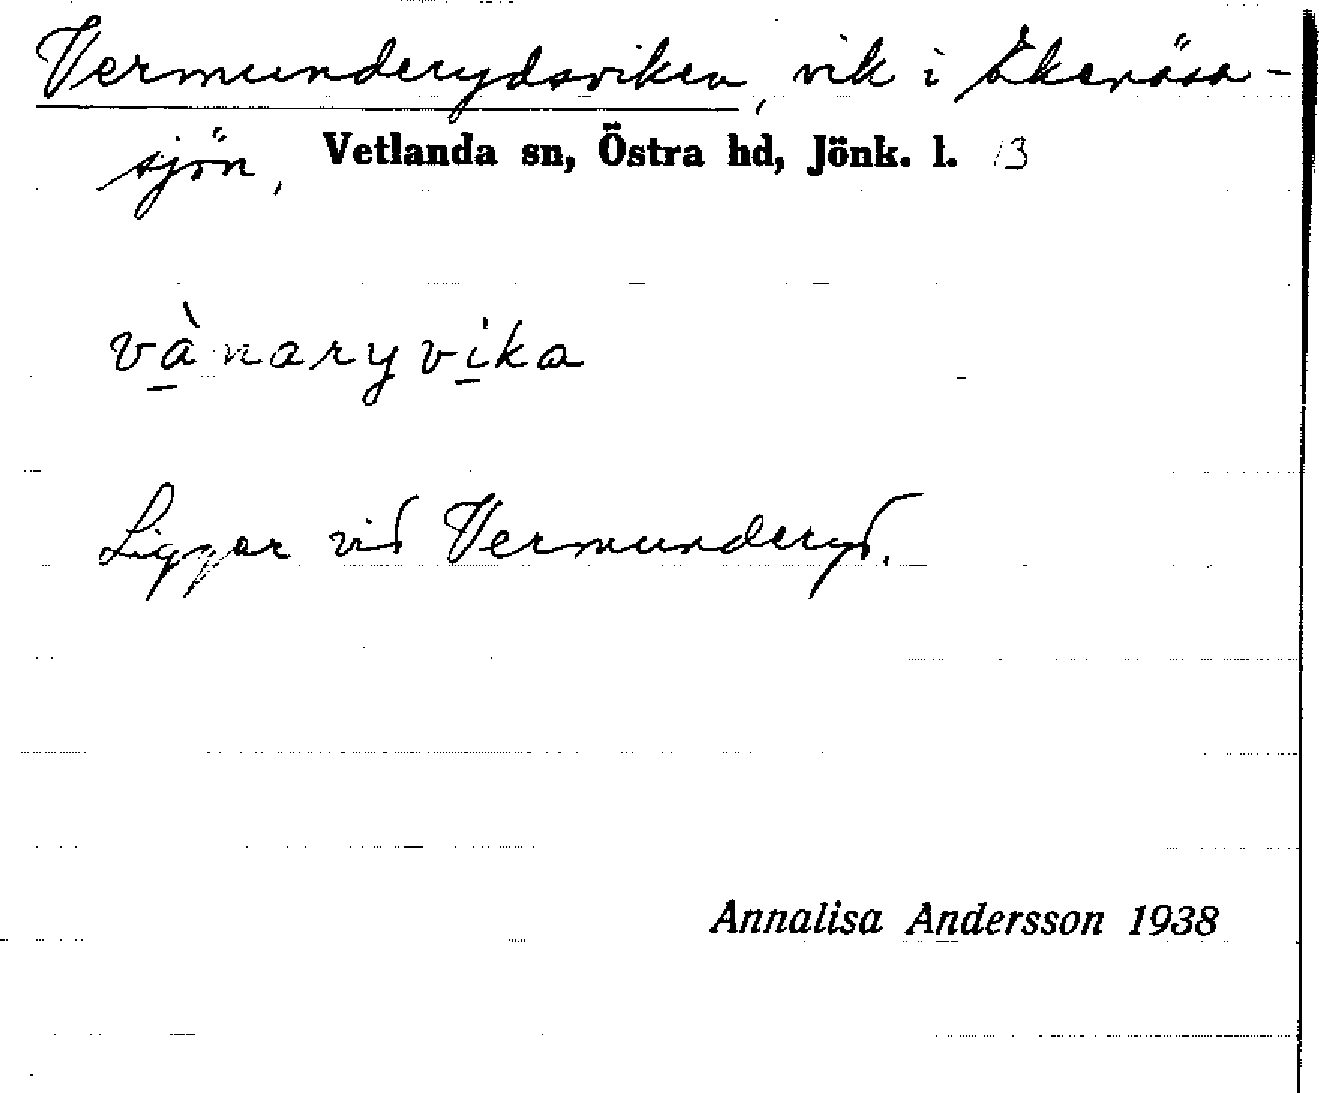 Vermunderydsviken, vik i Ekenässa-
sjön, Vetlanda sn, Östra hd, Jönk. l. 13
và̱naryvi̱ka
Ligger vid Vermunderyd.
Annalisa Andersson 1938